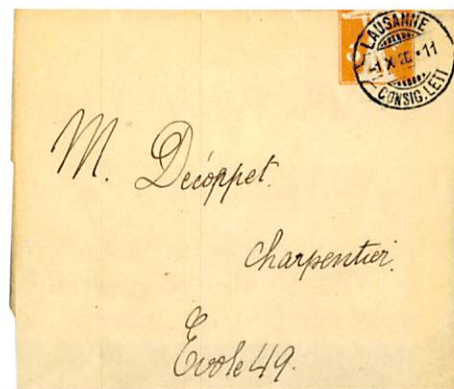 LAUSANNE
1 X 20 • 11
CONSIG. LETT
M. Décoppet.
charpentier.
Evole 49.